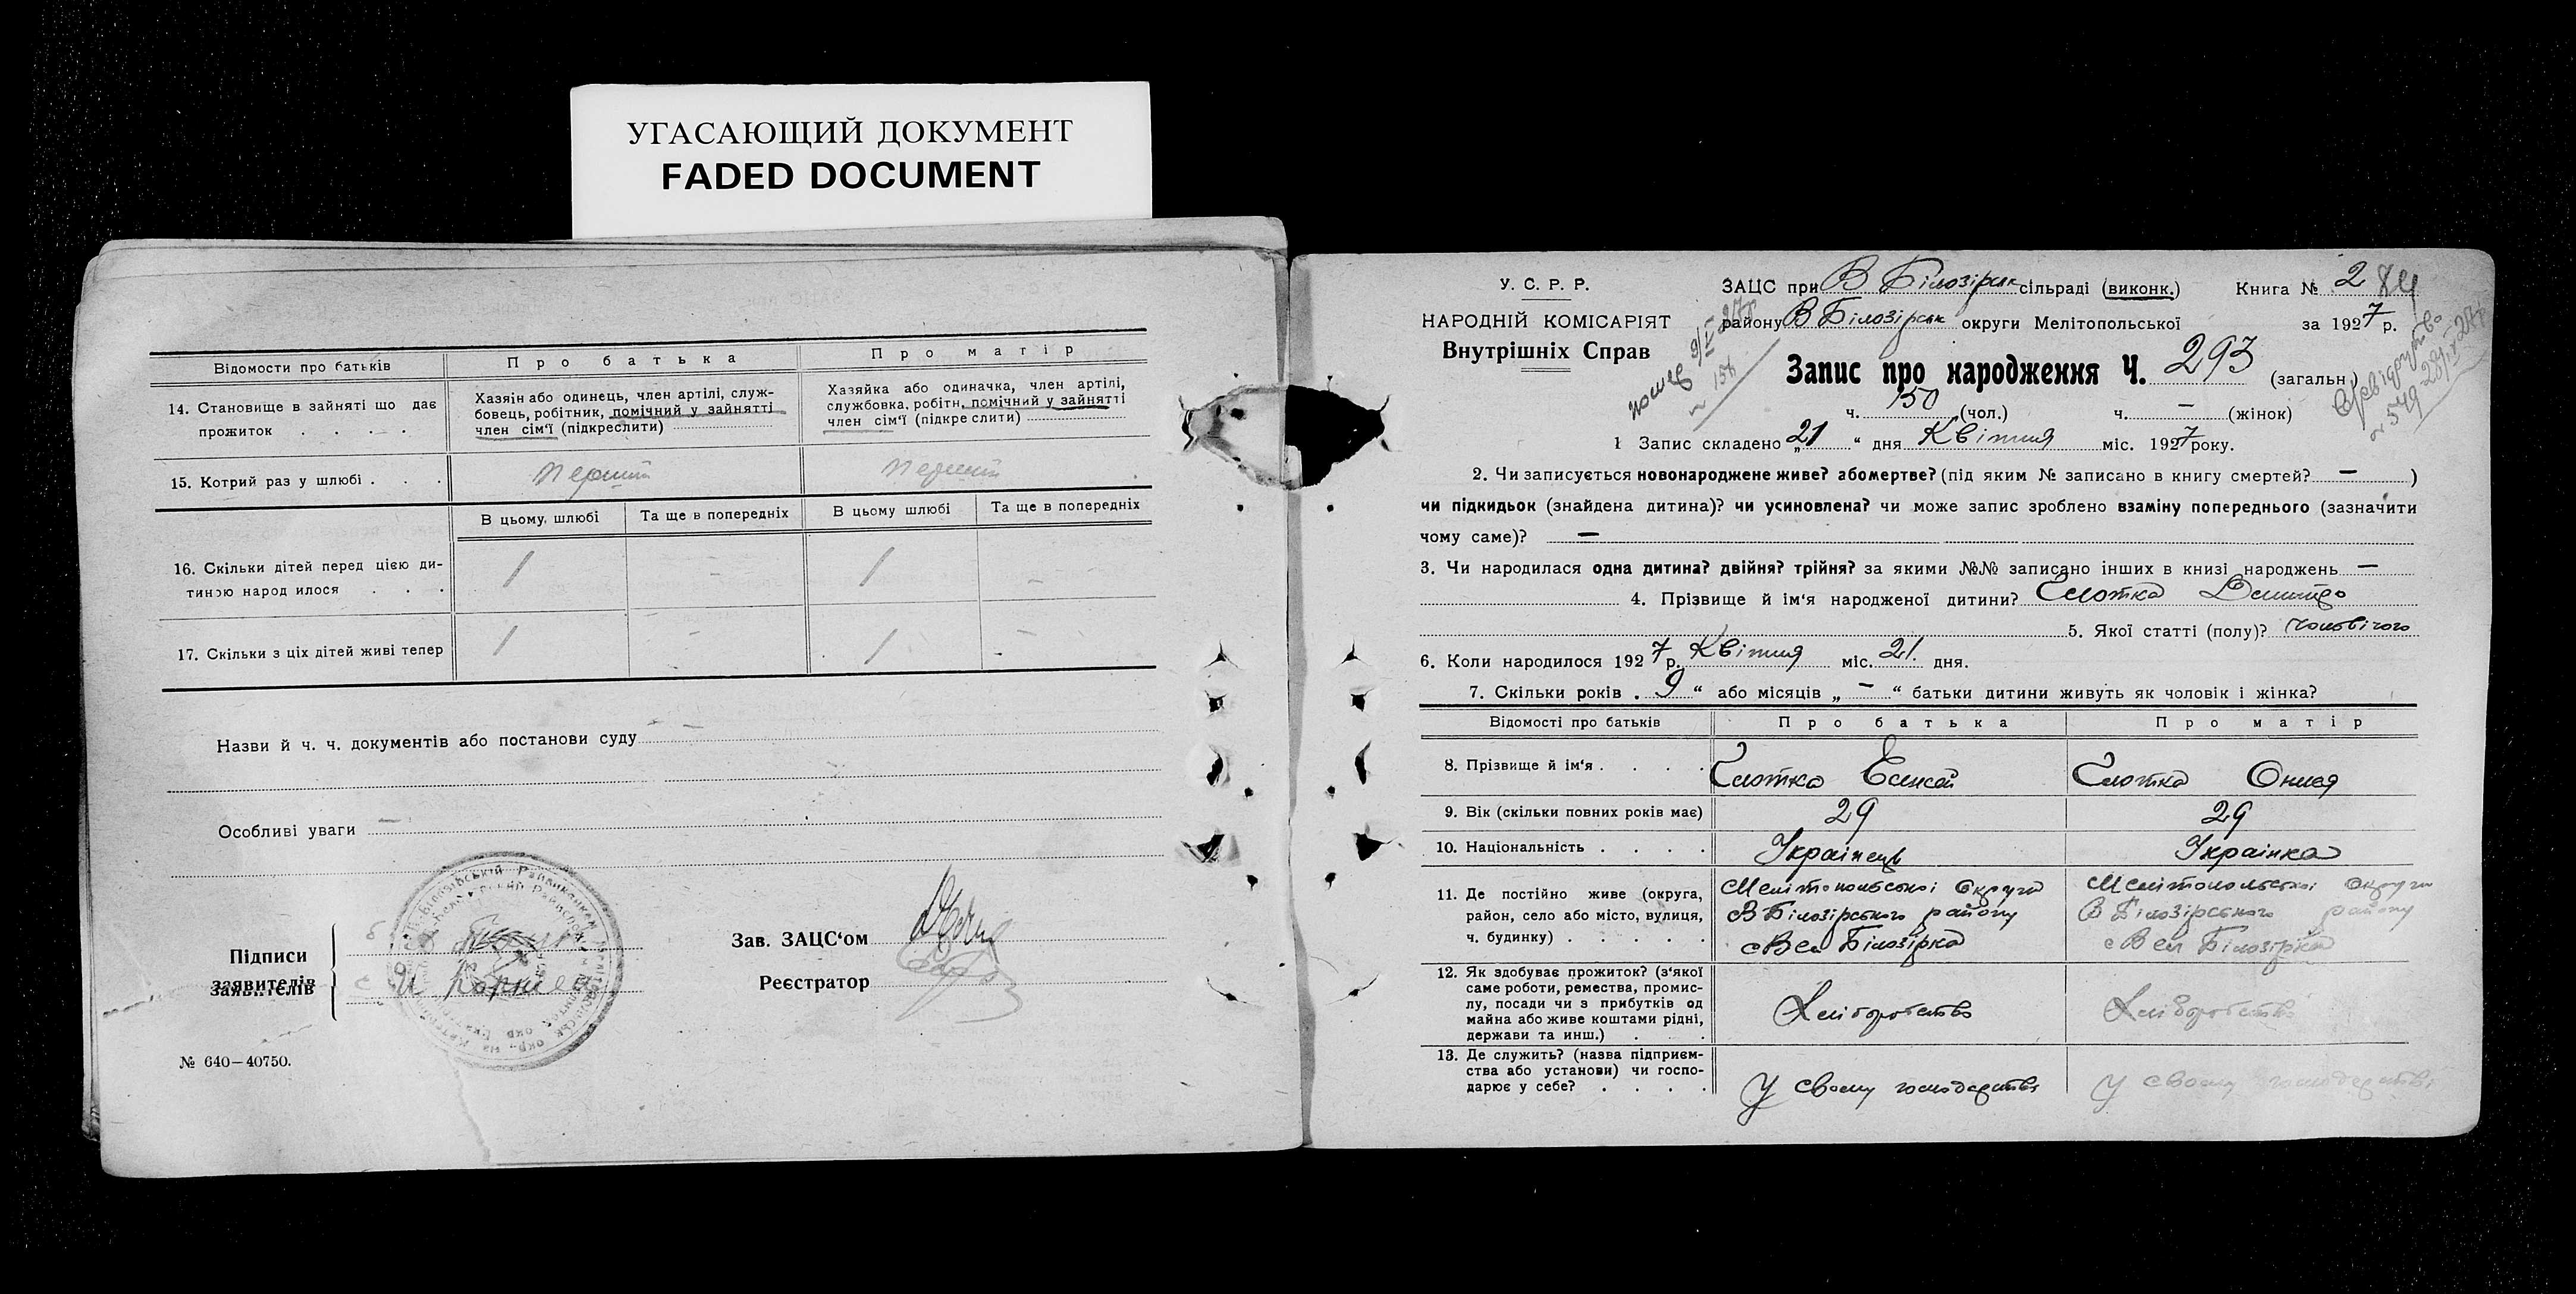 УГАСАЮЩИЙ ДОКУМЕНТ
FADED DOCUMENT
Відомости про батьків
Про батька
Про матір
14. Становище в зайняті що дає
прожиток . . . .
Хазяїн або одинець, член артілі, служ-
бовець, робітник, помічний у зайнятті
член сім'ї (підкреслити)
Хазяйка або одиначка, член артілі,
службовка, робітн, помічний у зайнятті
член сім'ї (підкре слити)
15. Котрий раз у шлюбі . . .
першій
першій
В цьому, шлюбі
Та ще в попередніх
В цьому шлюбі
Та ще в попередніх
16. Скільки дітей перед цією ди-
тиною народ илося . . .
1 - 1 -
17. Скільки з ціх дітей живі тепер
1 - 1 -
Назви й ч. ч. документів або постанови суду -
Особливі уваги —
Підписи
заявителів
Зав. ЗАЦС'ом
Реєстратор
№ 640—40750.
У. С. Р. Р.
НАРОДНІЙ КОМІСАРІЯТ
Внутрішніх Справ
ЗАЦС при В Білозірськ сільраді (виконк.) Книга № 2 84
району В Білозірськ округи Мелітопольської за 1927 р.
Запис про народження Ч. 293 (загальн.)
ч. 150 (чол.) ч. — (жінок)
1 Запис складено „21" дня Квітня міс. 1927 року.
2. Чи записується новонароджене живе? абомертве? (під яким № записано в книгу смертей? — )
чи підкидьок (знайдена дитина)? чи усиновлена? чи може запис зроблено взаміну попереднього (зазначити
чому саме)? —
3. Чи народилася одна дитина? двійня? трійня? за якими №№ записано інших в книзі народжень —
4. Прізвище й ім'я народженої дитини? Слотка Дмитро
5. Якої статті (полу)? чоловічого
6. Коли народилося 1927 р. Квітня міс. 21. дня.
7. Скільки років . 9 " або місяців „ — " батьки дитини живуть як чоловік і жінка?
Відомості про батьків
Про батька
Про матір
8. Прізвище й ім'я . . . .
Слотка
Слотка
9. Вік (скільки повних років має)
29
29
10. Національність . . . .
Українець
Українка
11. Де постійно живе (округа,
район, село або місто, вулиця,
ч. будинку) . . . . .
Мелітопольської округи
В Білозірського району
с Вел Білозірка
Мелітопольської округи
В Білозірського району
с Вел Білозірка
12. Як здобуває прожиток? (з'якої
саме роботи, ремества, промис-
лу, посади чи з прибутків од
майна або живе коштами рідні,
держави та инш.) . . .
Хліборобство
Хліборобство
13. Де служить? (назва підприєм-
ства або установи) чи госпо-
дарює у себе? . . . .
У своєму господарстві
У своєму господарстві